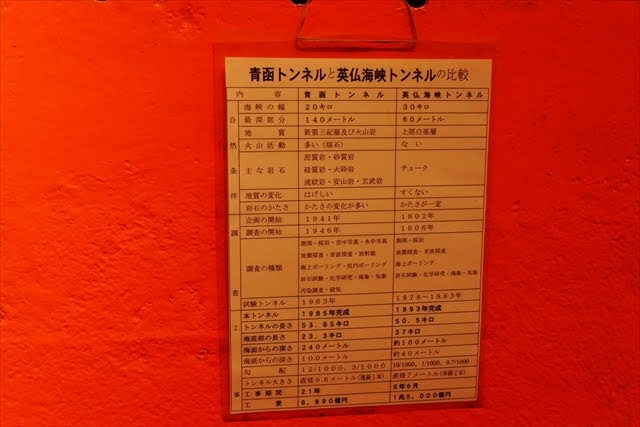 青函トンネルと英仏海峡トンネルの比較
内容 青函トンネル 英仏海峡トンネル
自然条件
海峡の幅 20キロ 30キロ
最深部分 140メートル 60メートル
地質 新第三紀層及び火山岩 上部白亜層
火山活動 多い（熔石） ない
主な岩石 泥質岩・砂質岩 チョーク
硅質岩・火砕岩
流紋岩・安山岩・玄武岩
地質の変化 はげしい すくない
岩石のかたさ かたさの変化が多い かたさが一定
調査
企画の開始 1941年 1802年
調査の開始 1946年 1806年
調査の種類 測深・採岩・空中写真・水中写真 測深・採岩
地震探査・音波探査・放射能 地震探査・音波探査
海上ボーリング・坑内ボーリング 海上ボーリング
岩石試験・化学研究・海象・気象 岩石試験・化学研究・海象・気象
汚染調査・磁気
試験トンネル 1963年 1878～1883年
工事
本トンネル 1985年完成 1993年完成
トンネルの長さ 53.85キロ 50.5キロ
海底部の長さ 23.3キロ 37キロ
海面からの深さ 240メートル 約100メートル
海底からの深さ 100メートル 約40メートル
勾配 12/1000、3/1000 10/1000、1/1000、0.7/1000
トンネル大きさ 直径9.6メートル（複線1本） 直径7メートル（単線2本）
工事期間 21年 6年6月
工費 6,890億円 1兆5,000億円